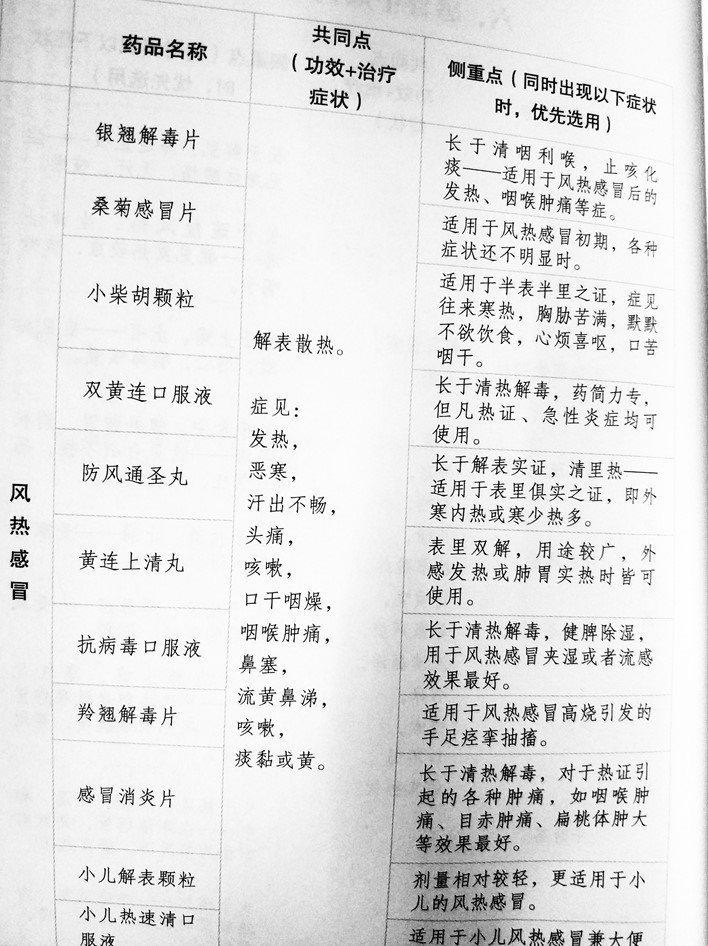 药品名称
共同点
（功效+治疗
症状）
侧重点（同时出现以下症状
时，优先选用）
风热感冒
银翘解毒片
长于清咽利喉，止咳化
痰——适用于风热感冒后的
发热、咽喉肿痛等症。
桑菊感冒片
适用于风热感冒初期，各种
症状还不明显时。
小柴胡颗粒
适用于半表半里之证，症见
往来寒热，胸胁苦满，默默
不欲饮食，心烦喜呕，口苦
咽干。
双黄连口服液
长于清热解毒，药简力专，
但凡热证、急性炎症均可
使用。
防风通圣丸
长于解表实证，清里热——
适用于表里俱实之证，即外
寒内热或寒少热多。
黄连上清丸
表里双解，用途较广，外
感发热或肺胃实热时皆可
使用。
抗病毒口服液
长于清热解毒，健脾除湿，
用于风热感冒夹湿或者流感
效果最好。
羚翘解毒片
适用于风热感冒高烧引发的
手足痉挛抽搐。
感冒消炎片
长于清热解毒，对于热证引
起的各种肿痛，如咽喉肿
痛、目赤肿痛、扁桃体肿大
等效果最好。
小儿解表颗粒
剂量相对较轻，更适用于小
儿的风热感冒。
小儿热速清口
服液
适用于小儿风热感冒兼大便
解表散热。
症见：
发热，
恶寒，
汗出不畅，
头痛，
咳嗽，
口干咽燥，
咽喉肿痛，
鼻塞，
流黄鼻涕，
咳嗽，
痰黏或黄。